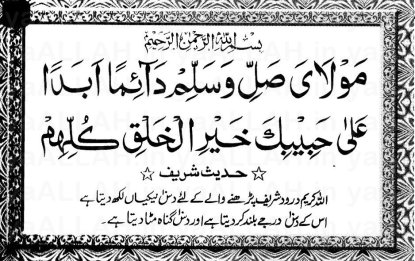 بسم الله الرحمن الرحيم
مَولَایَ صَلِّ وَسَلِّمْ دَآئِمًا اَبَدًا
عَلیٰ حَبِیْبِكَ خَیْرِ الْخَلْقِ كُلِّهِمْ
☆ حدیث شریف ☆
اللہ کریم درود شریف پڑھنے والے کے لئے دس نیکیاں لکھ دیتا ہے
اس کے دس درجے بلند کر دیتا ہے اور دس گناہ مٹا دیتا ہے۔